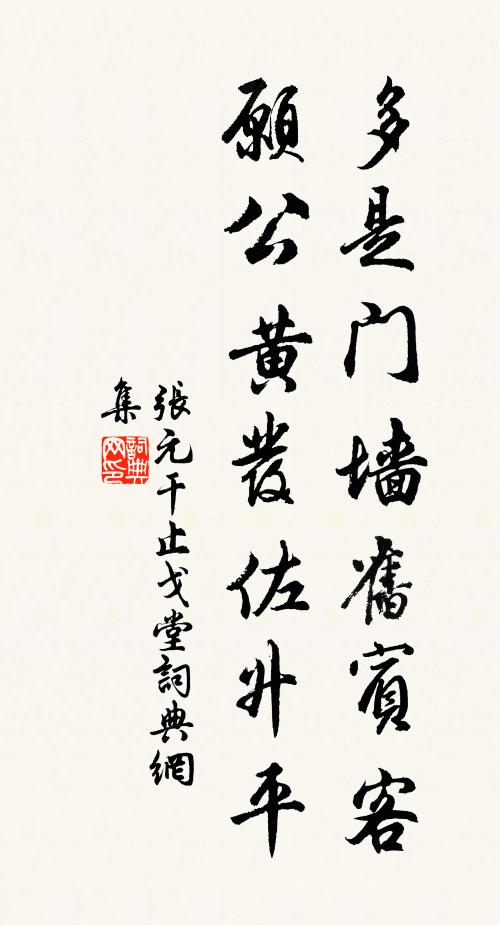 多是门墙舊賓客
願公黄發佐升平
張元干止戈堂詞典網
集
詞典网印